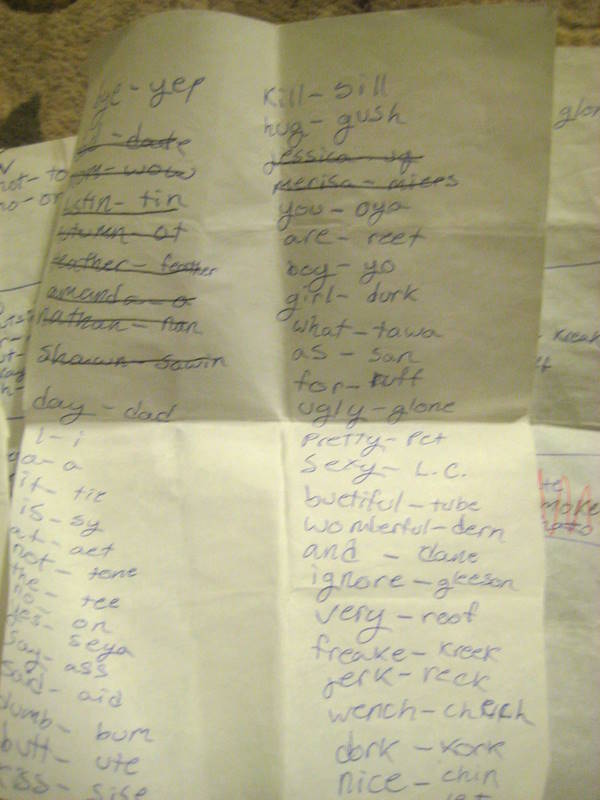 bye - yep
- date
- wow
ustin - tin
utumn - ot
heather - feather
amanda - a
nathan - nan
shawn - sawin
day - dad
I - i
a - a
it - tie
is - sy
at - aet
not - tone
the - tee
no - on
yes - seya
say - ass
said - aid
dumb - bum
butt - ute
kiss - sise
kill - sill
hug - gush
jessica - sq
merisa - mices
you - oya
are - reet
boy - yo
girl - durk
what - tawa
as - san
for - ruff
ugly - glone
pretty - pct
sexy - L.C.
buetiful - tube
womberful - dern
and - dane
ignore - gleeson
very - reof
freake - kreek
jerk - reck
wench - cherch
dork - kork
nice - chin
not - to
no - or
glone
kreak
make